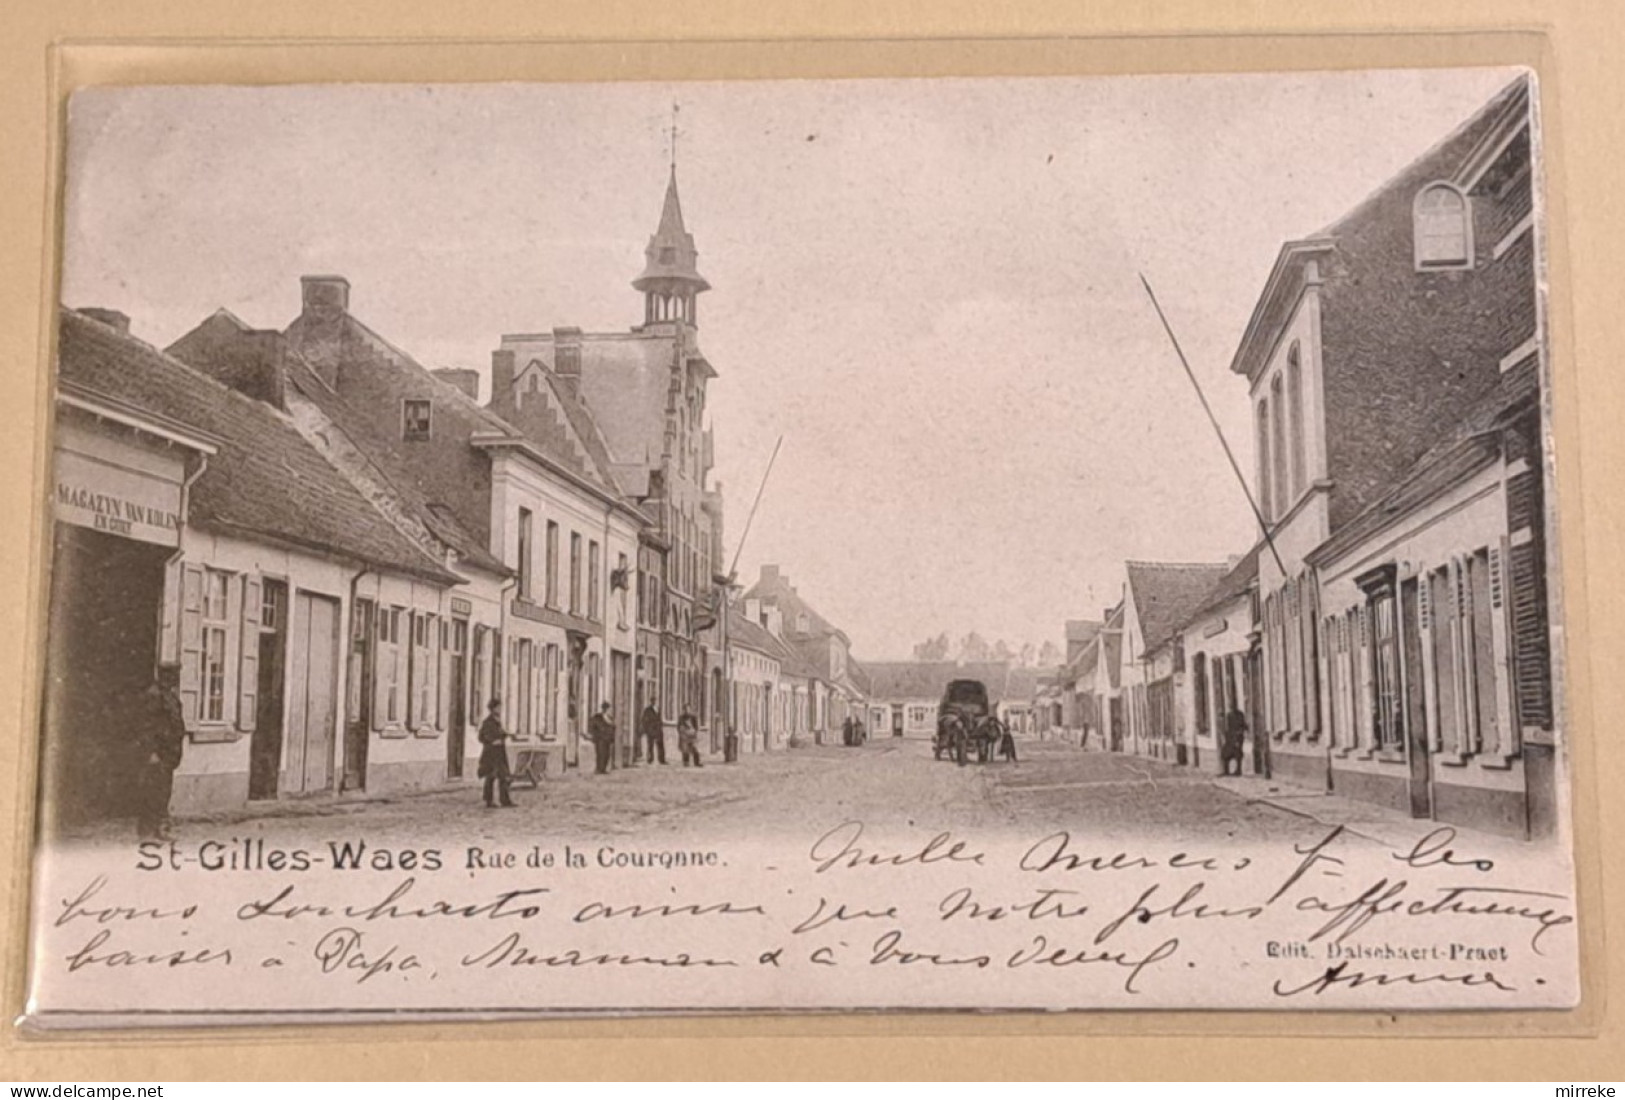 MAGAZYN VAN KOLEN
EN
St-Gilles-Waes Rue de la Couronne.
Mille Mercis pr les
bons souhaits ainsi que notre plus affectueux
baiser à Papa, Maman & à vous deux.
Edit. Dalschaert-Praet
Anna.
Delcampe.net
mirreke